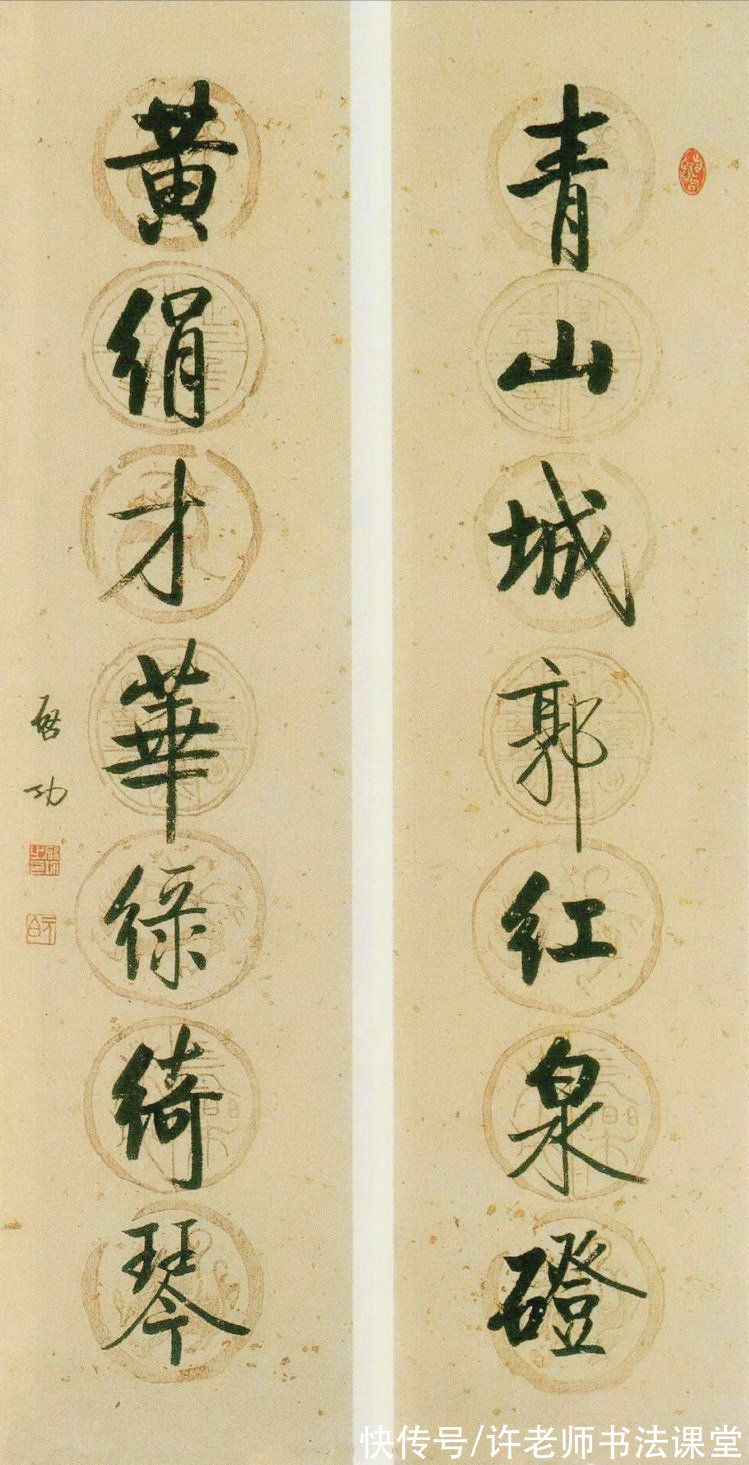 青山城郭紅泉磴
黃絹才華綠綺琴
啟功
快传号/许老师书法课堂